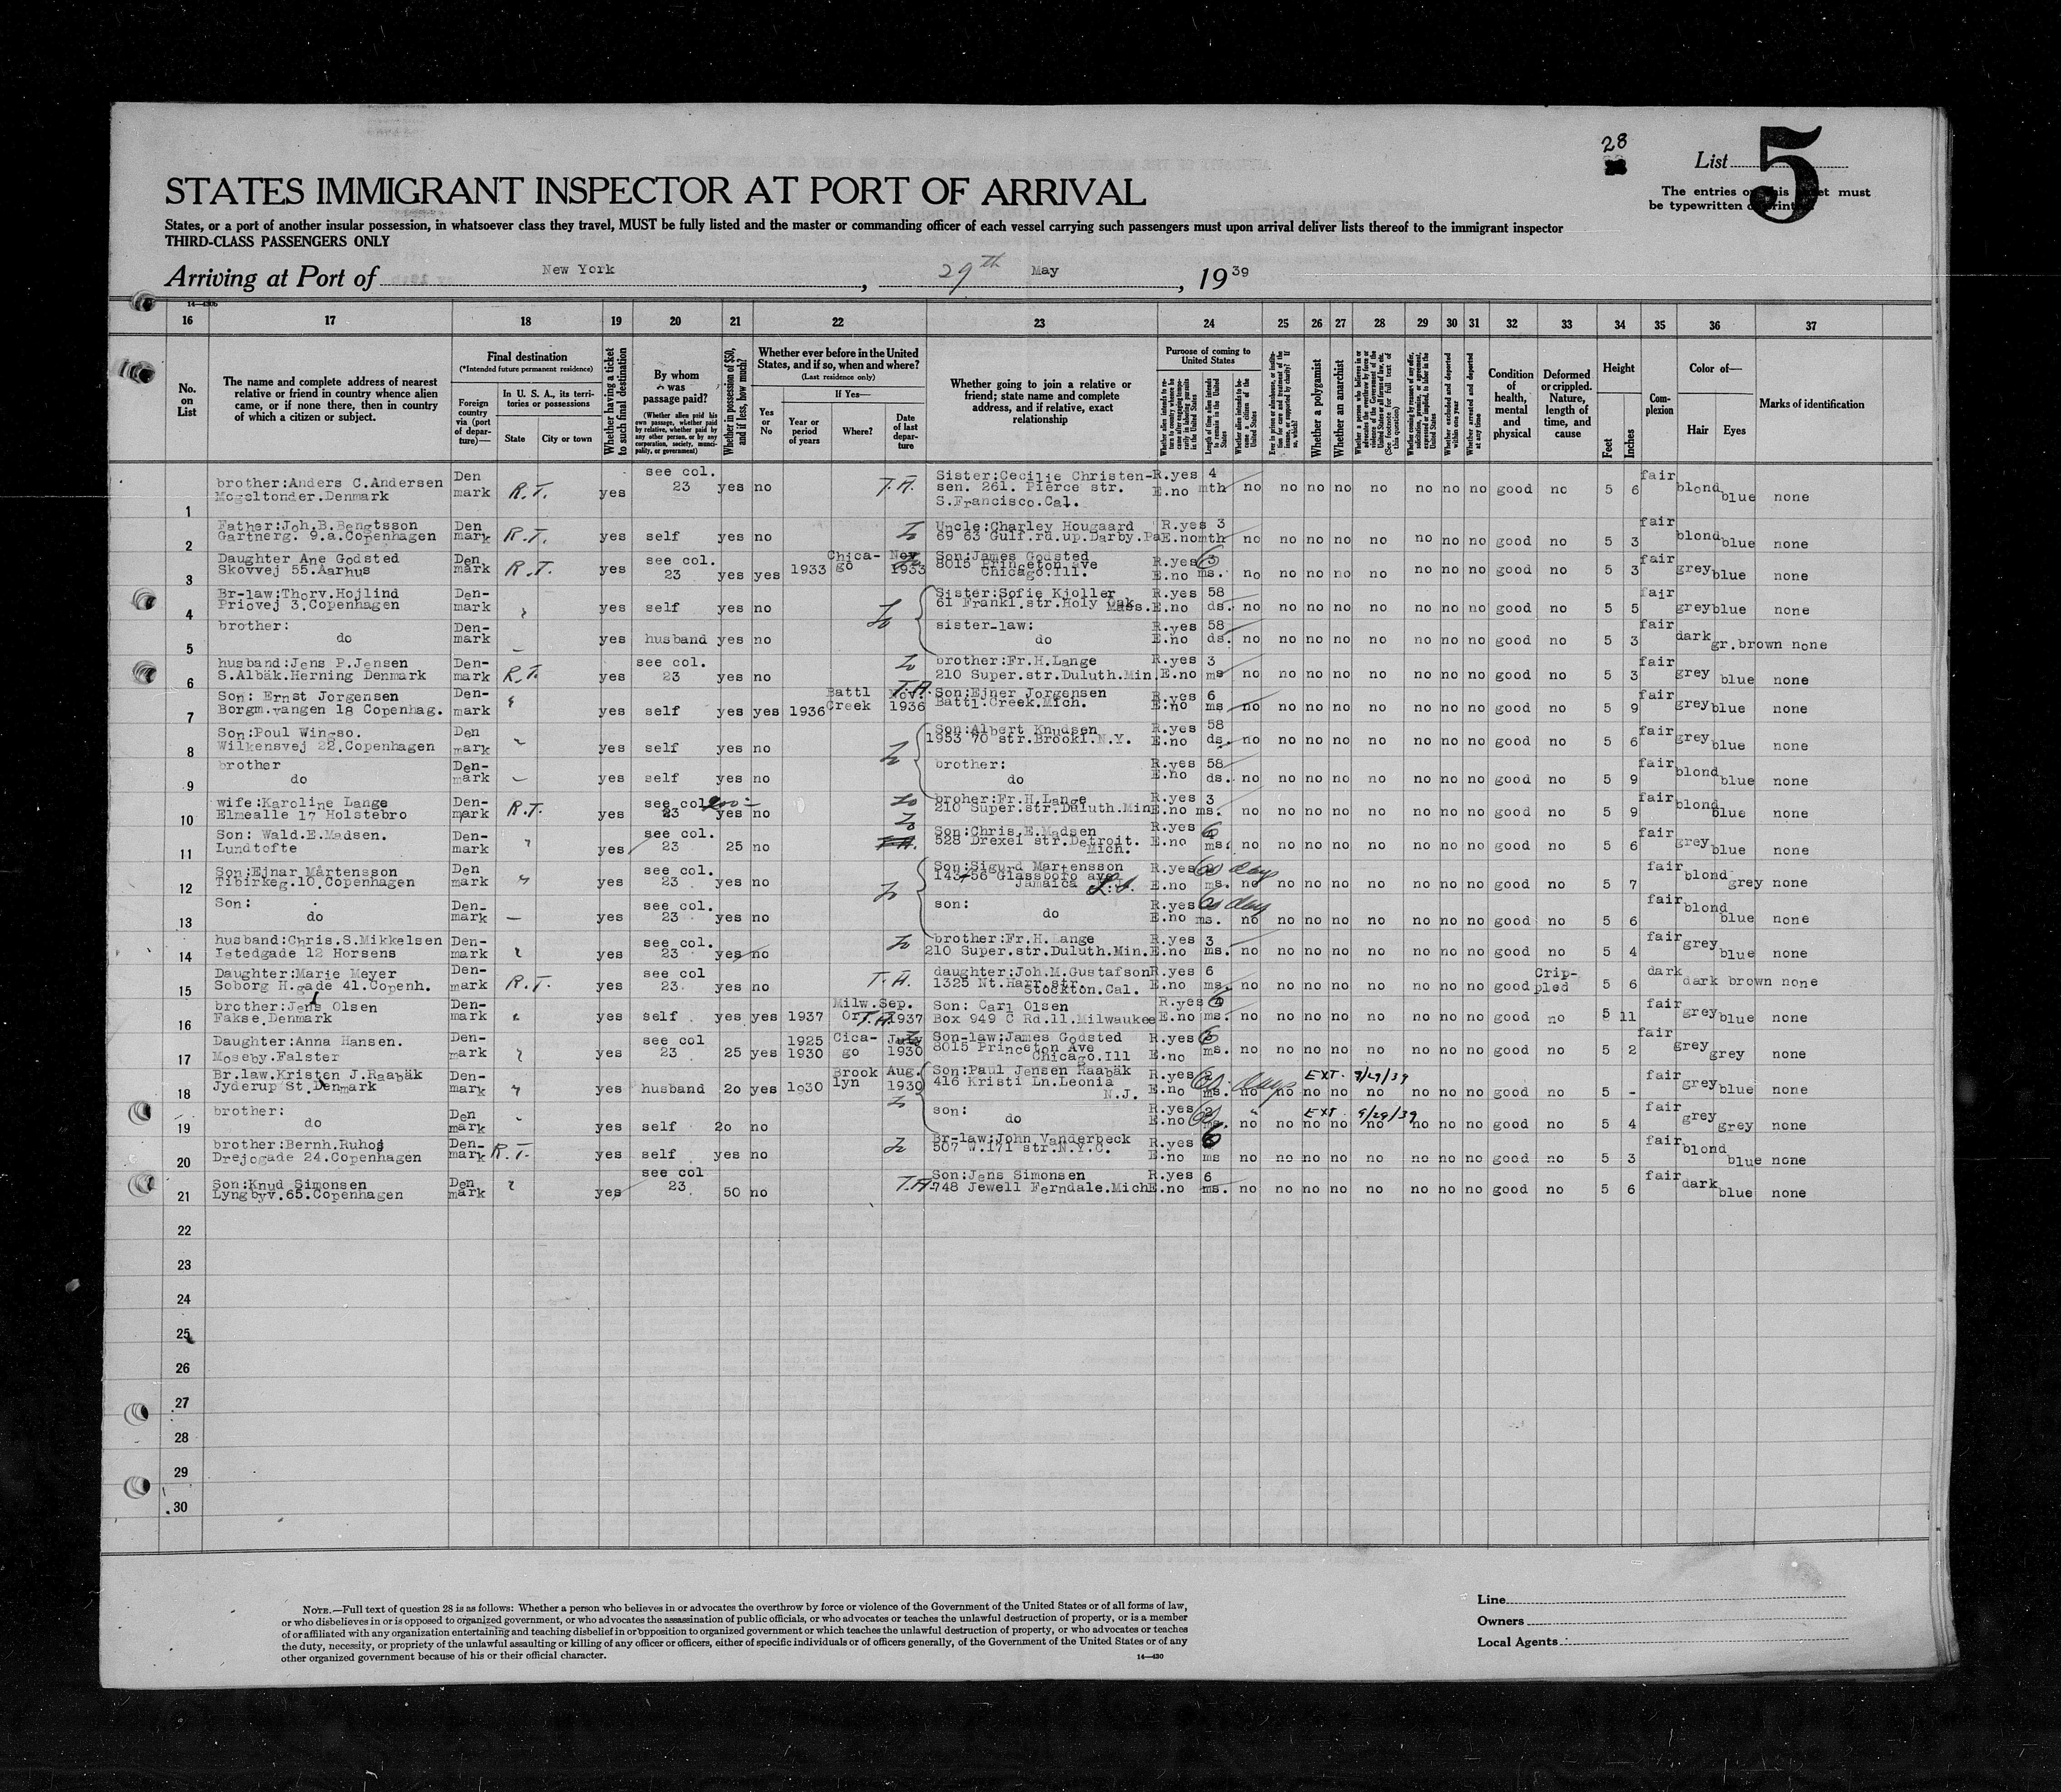 28
List 5
STATES IMMIGRANT INSPECTOR AT PORT OF ARRIVAL
The entries on this sheet must
be typewritten or printed
States, or a port of another insular possession, in whatsoever class they travel, MUST be fully listed and the master or commanding officer of each vessel carrying such passengers must upon arrival deliver lists thereof to the immigrant inspector
THIRD-CLASS PASSENGERS ONLY
Arriving at Port of New York, 29th May, 1939
14—430b
16 17 18 19 20 21 22 23 24 25 26 27 28 29 30 31 32 33 34 35 36 37
No. on List
The name and complete address of nearest relative or friend in country whence alien came, or if none there, then in country of which a citizen or subject.
Final destination
(*Intended future permanent residence)
Foreign country via (port of departure)—
In U. S. A., its territories or possessions
State City or town
Whether having a ticket to such final destination
By whom was passage paid?
(Whether alien paid his own passage, whether paid by relative, whether paid by any other person, or by any corporation, society, municipality, or government)
Whether in possession of $50, and if less, how much?
Whether ever before in the United States, and if so, when and where?
(Last residence only)
Yes or No
If Yes—
Year or period of years
Where?
Date of last departure
Whether going to join a relative or friend; state name and complete address, and if relative, exact relationship
Purpose of coming to United States
Length of time alien intends to remain in the United States
Whether alien intends to become a citizen of the United States
Whether a polygamist
Whether an anarchist
Whether excluded and deported within one year
Whether arrested and deported at any time
Condition of health, mental and physical
Deformed or crippled. Nature, length of time, and cause
Height
Feet Inches
Complexion
Color of—
Hair Eyes
Marks of identification
1 brother:Anders C.Andersen Mogeltonder.Denmark Den mark R.T. yes see col. 23 yes no T.A. Sister:Cecilie Christensen. 261. Pierce str. S.Francisco.Cal. R.yes E.no 4 mth no no no no no no no no good no 5 6 fair blond blue none
2 Father:Joh.B.Bengtsson Gartnerg. 9.a.Copenhagen Den mark R.T. yes self yes no Uncle:Charley Hougaard 69 63 Gulf.rd.up.Darby.Pa R.yes E.no 3 mth no no no no no no no no good no 5 3 fair blond blue none
3 Daughter Ane Godsted Skovvej 55.Aarhus Den mark R.T. yes see col. 23 yes yes 1933 Chicago Nov 1933 Son:James Godsted 8015 Princeton ave Chicago.Ill. R.yes E.no ms. no no no no no no no no good no 5 3 fair grey blue none
4 Br-law:Thorv.Hojlind Priovej 3.Copenhagen Den-mark yes self yes no Sister:Sofie Kjoller 61 Frankl.str.Holy Oak Mass. R.yes E.no 58 ds. no no no no no no no no good no 5 5 fair grey blue none
5 brother: do Den-mark yes husband yes no sister-law: do R.yes E.no 58 ds. no no no no no no no no good no 5 3 fair dark gr.brown none
6 husband:Jens P.Jensen S.Albäk.Herning Denmark Den-mark R.T. yes see col. 23 yes no brother:Fr.H.Lange 210 Super.str.Duluth.Min. R.yes E.no 3 ms no no no no no no no no good no 5 3 fair grey blue none
7 Son: Ernst Jorgensen Borgm.vangen 18 Copenhag. Den-mark yes self yes yes 1936 Battl Creek Nov. 1936 T.A. Son:Ejner Jorgensen Battl.Creek.Mich. R.yes E.no 6 ms no no no no no no no no good no 5 9 fair grey blue none
8 Son:Poul Wingso. Wilkensvej 22.Copenhagen Den mark yes self yes no Son:Albert Knudsen 1953 70 str.Brookl.N.Y. R.yes E.no 58 ds. no no no no no no no no good no 5 6 fair grey blue none
9 brother do Den-mark yes self yes no brother: do R.yes E.no 58 ds. no no no no no no no no good no 5 9 fair blond blue none
10 wife:Karoline Lange Elmealle 17 Holstebro Den-mark R.T. yes see col 23 yes no broher:Fr.H.Lange 210 Super.str.Duluth.Min R.yes E.no 3 ms. no no no no no no no no good no 5 9 fair blond blue none
11 Son: Wald.E.Madsen. Lundtofte Den-mark yes see col. 23 25 no Son:Chris.E.Madsen 528 Drexel str.Detroit. Mich. R.yes E.no 6 ms. no no no no no no no no good no 5 6 fair grey blue none
12 Son:Ejnar Mårtensson Tibirkeg.10.Copenhagen Den mark yes see col. 23 yes no Son:Sigurd Martensson 143-56 Glassboro ave Jamaica L.I. R.yes E.no 60 days ms. no no no no no no no no good no 5 7 fair blond grey none
13 Son: do Den-mark yes see col. 23 yes no son: do R.yes E.no 60 days ms. no no no no no no no no good no 5 6 fair blond blue none
14 husband:Chris.S.Mikkelsen Istedgade 12 Horsens Den-mark yes see col. 23 yes no brother:Fr.H.Lange 210 Super.str.Duluth.Min. R.yes E.no 3 ms. no no no no no no no no good no 5 4 fair grey blue none
15 Daughter:Marie Meyer Soborg H.gade 41.Copenh. Den-mark R.T. yes see col 23. yes no T.A. daughter:Joh.M.Gustafson 1325 Nt.Harr.str. Stockton.Cal. R.yes E.no 6 ms. no no no no no no no no good Crip-pled 5 6 dark dark brown none
16 brother:Jens Olsen Fakse.Denmark Den-mark yes self yes yes 1937 Milw. Or Sep. 1937 T.A. Son: Carl Olsen Box 949 C Rd.11.Milwaukee R.yes E.no 6 ms. no no no no no no no no good no 5 11 fair grey blue none
17 Daughter:Anna Hansen. Moseby.Falster Den-mark yes see col 23 25 yes 1925 1930 Cica-go July 1930 Son-law:James Godsted 8015 Princeton Ave Chicago.Ill R.yes E.no 6 ms. no no no no no no no no good no 5 2 fair grey grey none
18 Br.law.Kristen J.Raabäk Jyderup St.Denmark Den-mark yes husband 20 yes 1930 Brook lyn Aug. 1930 Son:Paul Jensen Raabäk 416 Kristi Ln.Leonia N.J. R.yes E.no 60 days ms. no no EXT. 9/29/39 no no no no no no good no 5 - fair grey blue none
19 brother: do Den mark yes self 20 no son: do R.yes E.no 60 " no no EXT. 9/29/39 no no no no no no good no 5 4 fair grey grey none
20 brother:Bernh.Ruhos Drejogade 24.Copenhagen Den-mark R.T. yes self yes no Br-law:John Vanderbeck 507 W.171 str.N.Y.C. R.yes E.no 6 ms no no no no no no no no good no 5 3 fair blond blue none
21 Son:Knud Simonsen Lyngbyv.65.Copenhagen Den mark yes see col 23. 50 no T.A. Son:Jens Simonsen 748 Jewell Ferndale.Mich R.yes E.no 6 ms. no no no no no no no no good no 5 6 fair dark blue none
22
23
24
25
26
27
28
29
30
NOTE.—Full text of question 28 is as follows: Whether a person who believes in or advocates the overthrow by force or violence of the Government of the United States or of all forms of law,
or who disbelieves in or is opposed to organized government, or who advocates the assassination of public officials, or who advocates or teaches the unlawful destruction of property, or is a member
of or affiliated with any organization entertaining and teaching disbelief in or opposition to organized government or which teaches the unlawful destruction of property, or who advocates or teaches
the duty, necessity, or propriety of the unlawful assaulting or killing of any officer or officers, either of specific individuals or of officers generally, of the Government of the United States or of any
other organized government because of his or their official character.
14—430
Line
Owners
Local Agents